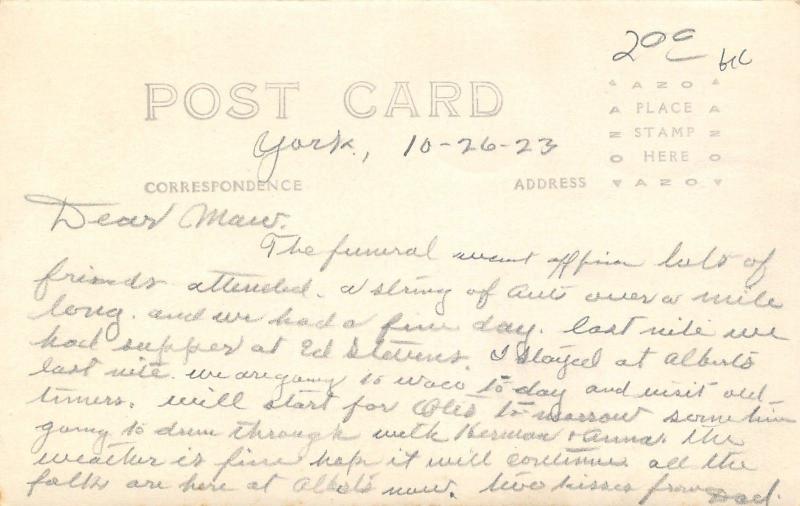 20¢
POST CARD
AZO
PLACE
STAMP
HERE
AZO
York, 10-26-23
CORRESPONDENCE
ADDRESS
Dear Maw.
The funeral went off fine lots of
friends attended. a string of auts over a mile
long. and we had a fine day. last nite we
had supper at Ed Stevens. I stayed at Alberts
last nite. we are going to waco to day and visit old-
timers. will start for Otis to morrow some time
going to drive through with Herman & Anna. The
weather is fine hope it will continue. all the
folks are here at Alberts now. two kisses from Dad.